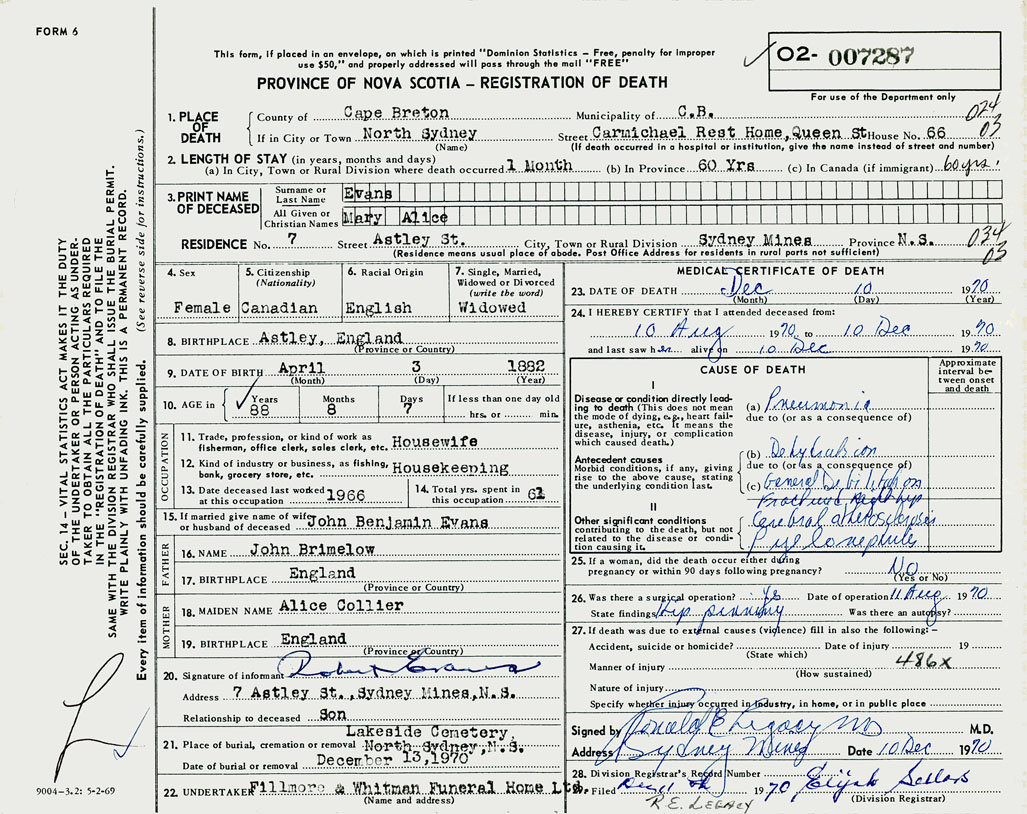 FORM 6
This form, if placed in an envelope, on which is printed "Dominion Statistics – Free, penalty for improper
use $50," and properly addressed will pass through the mail "FREE"
PROVINCE OF NOVA SCOTIA – REGISTRATION OF DEATH
02- 007287
For use of the Department only
1. PLACE OF DEATH
County of Cape Breton Municipality of C.B. 024
If in City or Town North Sydney Street Carmichael Rest Home, Queen St House No. 66 03
(Name) (If death occurred in a hospital or institution, give the name instead of street and number)
2. LENGTH OF STAY (in years, months and days)
(a) In City, Town or Rural Division where death occurred 1 Month (b) In Province 60 Yrs (c) In Canada (if immigrant) 60 yrs.
3. PRINT NAME OF DECEASED
Surname or Last Name Evans
All Given or Christian Names Mary Alice
RESIDENCE No. 7 Street Astley St. City, Town or Rural Division Sydney Mines Province N.S. 034
(Residence means usual place of abode. Post Office Address for residents in rural parts not sufficient) 03
4. Sex
Female
5. Citizenship
(Nationality)
Canadian
6. Racial Origin
English
7. Single, Married,
Widowed or Divorced
(write the word)
Widowed
8. BIRTHPLACE Astley, England
(Province or Country)
9. DATE OF BIRTH April 3 1882
(Month) (Day) (Year)
10. AGE in Years 88 Months 8 Days 7 If less than one day old
hrs. or min.
OCCUPATION
11. Trade, profession, or kind of work as
fisherman, office clerk, sales clerk, etc. Housewife
12. Kind of industry or business, as fishing,
bank, grocery store, etc. Housekeeping
13. Date deceased last worked
at this occupation 1966
14. Total yrs. spent in
this occupation 61
15. If married give name of wife
or husband of deceased John Benjamin Evans
FATHER
16. NAME John Brimelow
17. BIRTHPLACE England
(Province or Country)
MOTHER
18. MAIDEN NAME Alice Collier
19. BIRTHPLACE England
(Province or Country)
20. Signature of informant Robert Evans
Address 7 Astley St., Sydney Mines, N.S.
Relationship to deceased Son
Lakeside Cemetery,
21. Place of burial, cremation or removal North Sydney, N.S.
Date of burial or removal December 13, 1970
22. UNDERTAKER Fillmore & Whitman Funeral Home Ltd.
(Name and address)
MEDICAL CERTIFICATE OF DEATH
23. DATE OF DEATH Dec 10 1970
(Month) (Day) (Year)
24. I HEREBY CERTIFY that I attended deceased from:
10 Aug 1970 to 10 Dec 1970
and last saw her alive on 10 Dec 1970
CAUSE OF DEATH
Approximate
interval be-
tween onset
and death
I
Disease or condition directly lead-
ing to death (This does not
mean the mode of dying, e.g., heart fail-
ure, asthenia, etc. It means the
disease, injury, or complication
which caused death.)
(a) Pneumonia
due to (or as a consequence of)
Antecedent causes
Morbid conditions, if any, giving
rise to the above cause, stating
the underlying condition last.
(b) Dehydration
due to (or as a consequence of)
(c) General Debilitation
Fractured Right hip
II
Other significant conditions
contributing to the death, but not
related to the disease or condi-
tion causing it.
Cerebral atherosclerosis
Pyelonephritis
25. If a woman, did the death occur either during
pregnancy or within 90 days following pregnancy? No
(Yes or No)
26. Was there a surgical operation? Yes Date of operation 11 Aug 1970
State findings Hip pinning Was there an autopsy?
27. If death was due to external causes (violence) fill in also the following:–
Accident, suicide or homicide? Date of injury 19
(State which)
Manner of injury 486X
(How sustained)
Nature of injury
Specify whether injury occurred in industry, in home, or in public place
Signed by Ronald E Legacy MD M.D.
Address Sydney Mines Date 10 Dec 1970
28. Division Registrar's Record Number
29. Filed Dec 11 th 1970 Elijah Sellars
R.E. LEGACY (Division Registrar)
SEC. 14 – VITAL STATISTICS ACT MAKES IT THE DUTY
OF THE UNDERTAKER OR PERSON ACTING AS UNDER-
TAKER TO OBTAIN ALL THE PARTICULARS REQUIRED
IN THE "REGISTRATION OF DEATH" AND TO FILE THE
SAME WITH THE DIVISION REGISTRAR WHO SHALL ISSUE THE BURIAL PERMIT.
WRITE PLAINLY WITH UNFADING INK. THIS IS A PERMANENT RECORD.
Every item of information should be carefully supplied. (See reverse side for instructions.)
9004-3.2: 5-2-69